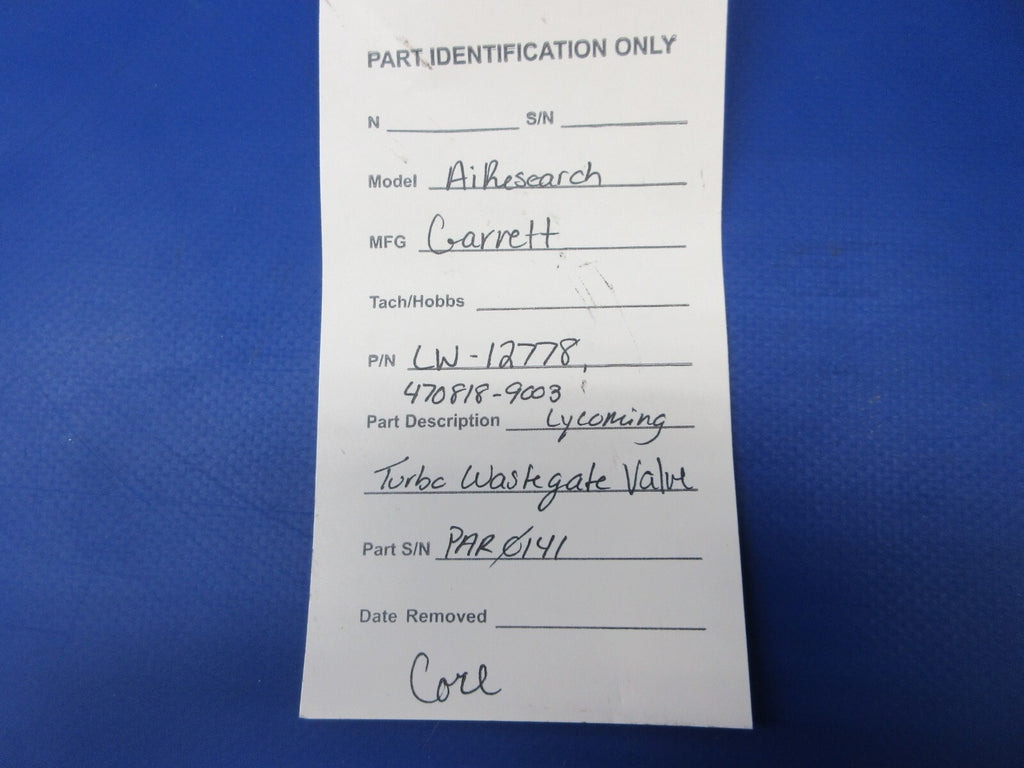 PART IDENTIFICATION ONLY
N S/N
Model AiResearch
MFG Garrett
Tach/Hobbs
P/N LW-12778,
470818-9003
Part Description Lycoming
Turbo Wastegate Valve
Part S/N PARØ141
Date Removed
Core